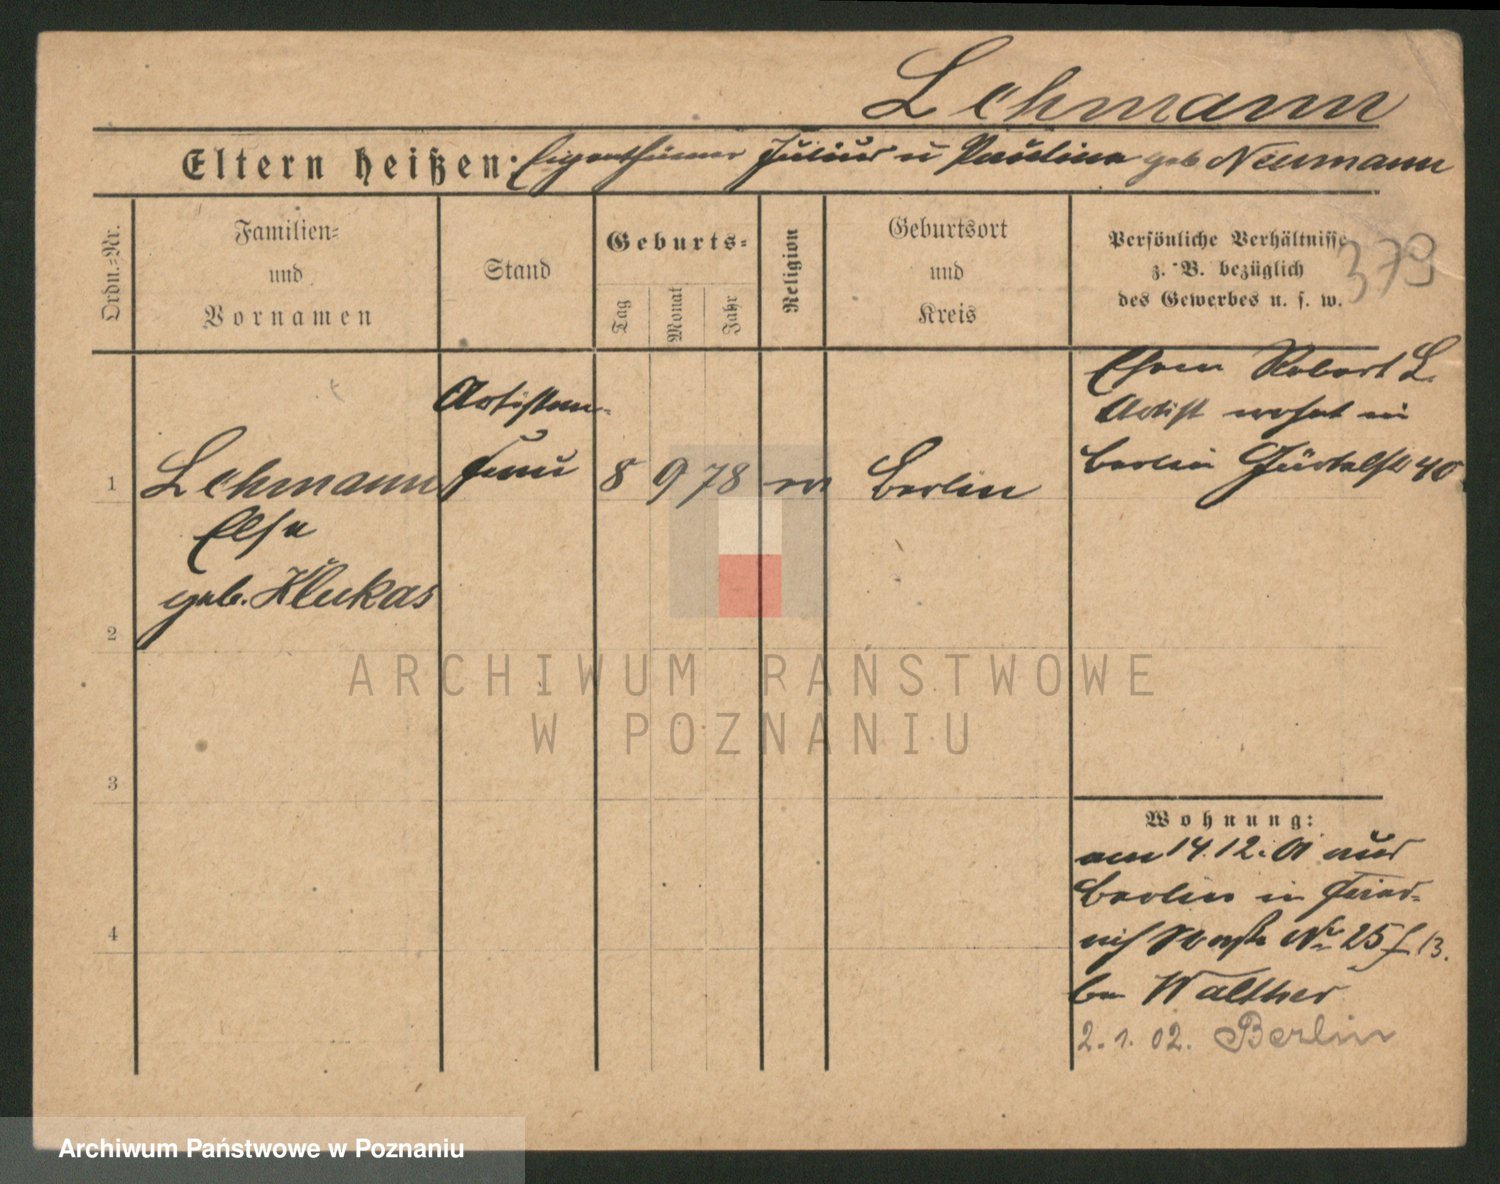 Lehmann
Eltern heißen: Eigenthümer Julius u Pauline geb Neumann
Ordn.=Nr.
Familien=
und
Vornamen
Stand
Geburts=
Tag
Monat
Jahr
Religion
Geburtsort
und
Kreis
Persönliche Verhältnisse
z. B. bezüglich
des Gewerbes u. s. w.
379
1
Lehmann
Else
geb. Klukas
Artisten-
frau
8 9 78
Berlin
Ehem Robert L.
Artist wohnt in
Berlin 40
2
3
4
Wohnung:
am 14.12.01 aus
Berlin in Fried-
rich Nr 25 f 13.
bei Walther
2.1.02. Berlin
ARCHIWUM PAŃSTWOWE
W POZNANIU
Archiwum Państwowe w Poznaniu